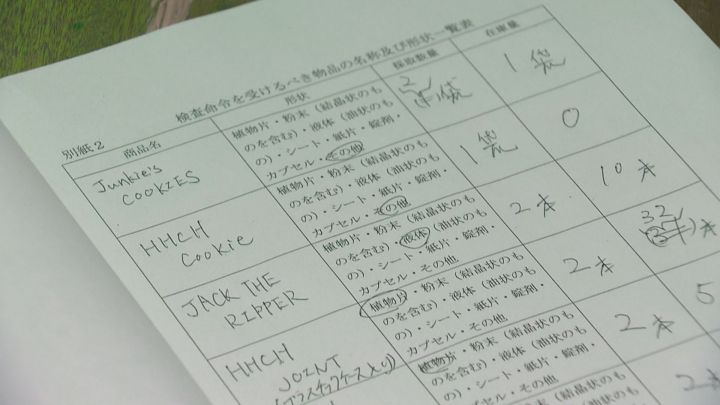 別紙2
検査命令を受けるべき物品の名称及び形状一覧表
商品名
形状
採取数量
在庫量
Junkie's
COOKIES
植物片・粉末（結晶状のも
のを含む）・液体（油状のも
の）・シート・紙片・錠剤・
カプセル・その他
2
1袋
HHCH
Cookie
植物片・粉末（結晶状のも
のを含む）・液体（油状のも
の）・シート・紙片・錠剤・
カプセル・その他
1袋
0
JACK THE
RIPPER
植物片・粉末（結晶状のも
のを含む）・液体（油状のも
の）・シート・紙片・錠剤・
カプセル・その他
2本
10本
HHCH
JOINT
(プラスチックケース入り)
植物片・粉末（結晶状のも
のを含む）・液体（油状のも
の）・シート・紙片・錠剤・
カプセル・その他
2本
32
本
植物片・粉末（結晶状のも
のを含む）・液体（油状のも
の）・シート・紙片・錠剤・
カプセル・その他
2本
5
2本